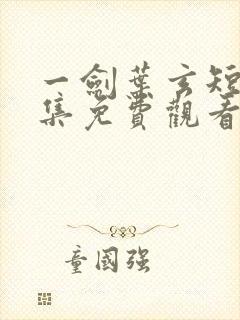 一劍葉玄短
集免費觀看
童國强